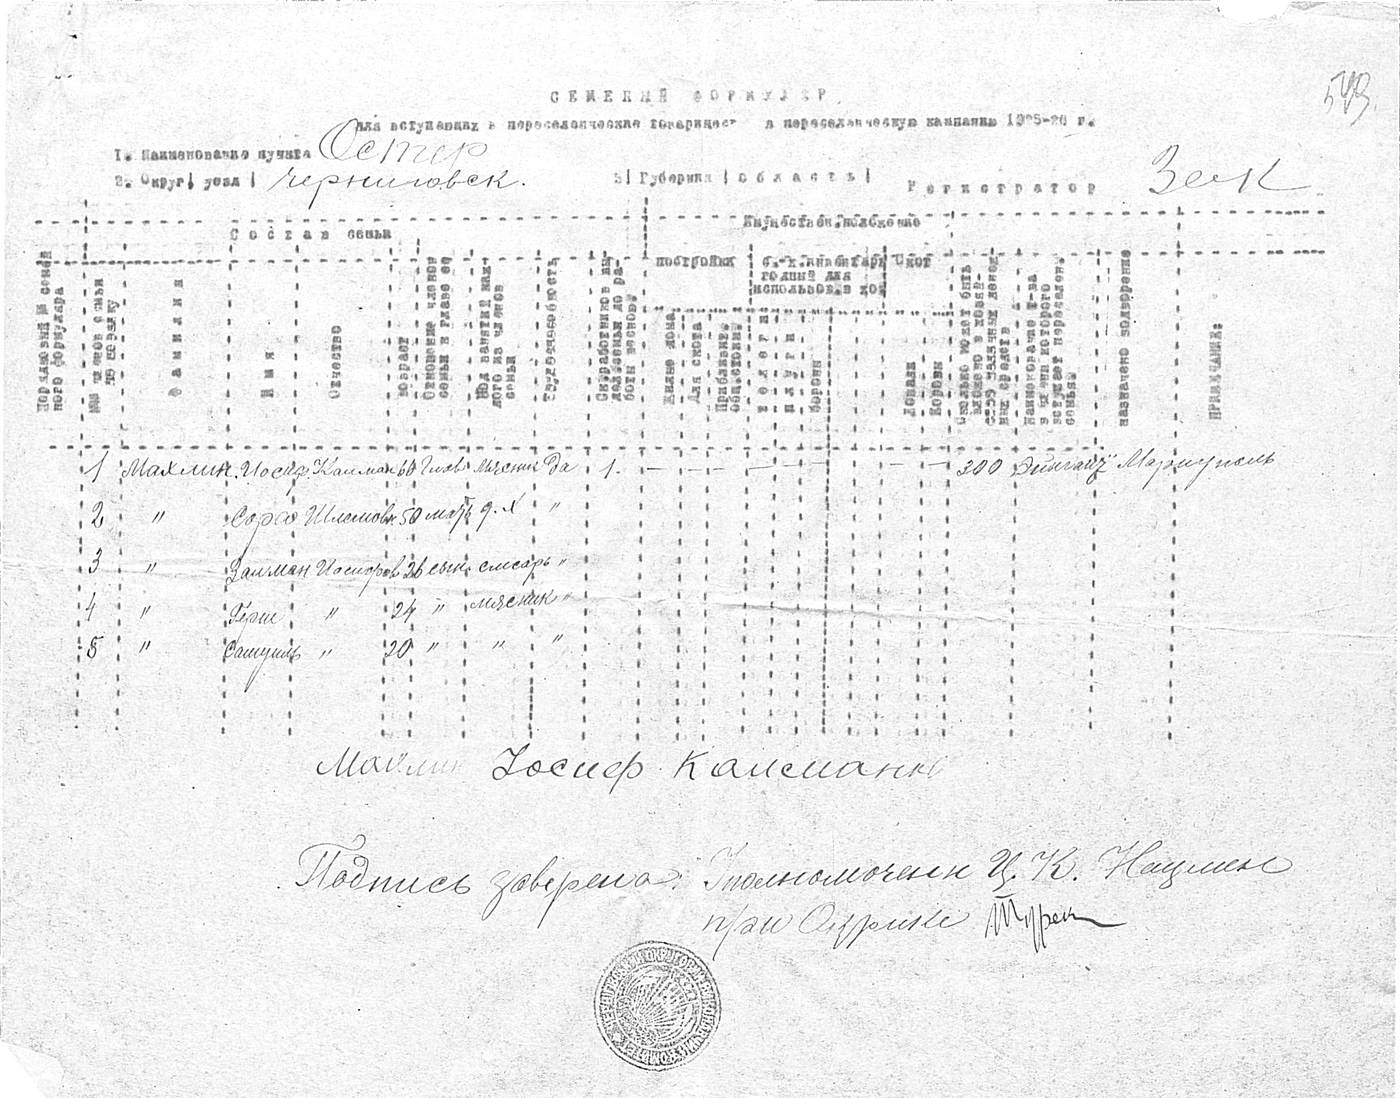 549
СЕМЕЙНЫЙ ФОРМУЛЯР
для вступающих в переселенческие товарищест   в переселенческую кампанию 1925-26 г.
1. Наименование пункта Остер
2. Округ/ уезд / Черниговск.   3/ Губерния / область /   Регистратор
Состав семьи   Имуществен. положение
постройки   с.-х. инвентарь годный для использов. в хоз   Скот
Порядковый № семейного формуляра
№№ членов семьи по порядку
Фамилия
Имя
Отчество
возраст
Отношение членов семьи к главе ее
Род занятий каждого из членов семьи
Трудоспособность
Жилые дома
Для скота
Приблизит.
Телеги
плуги
бороны
Лошади
Коровы
Сколько может быть вложено в хозяйство наличных денежных средств
Наименование т-ва в члены которого вступает переселен. семья
назначено водворение
ПРИМЕЧАНИЕ:
1 Махлин. Иосиф Калман 60 Глав. Мясник Да 1. — — — — — — — — 200 Мариуполь
2 " Сора Шлемов. 50 мать д. х "
3 " Залман Иосифов 26 сын. слесарь "
4 " Герш " 24 " мясник "
5 " Самуиль " 20 " " "
Махлин Иосиф Калманов
Подпись заверена: Уполномоченн Ц. К. Нацмен
при Окрике